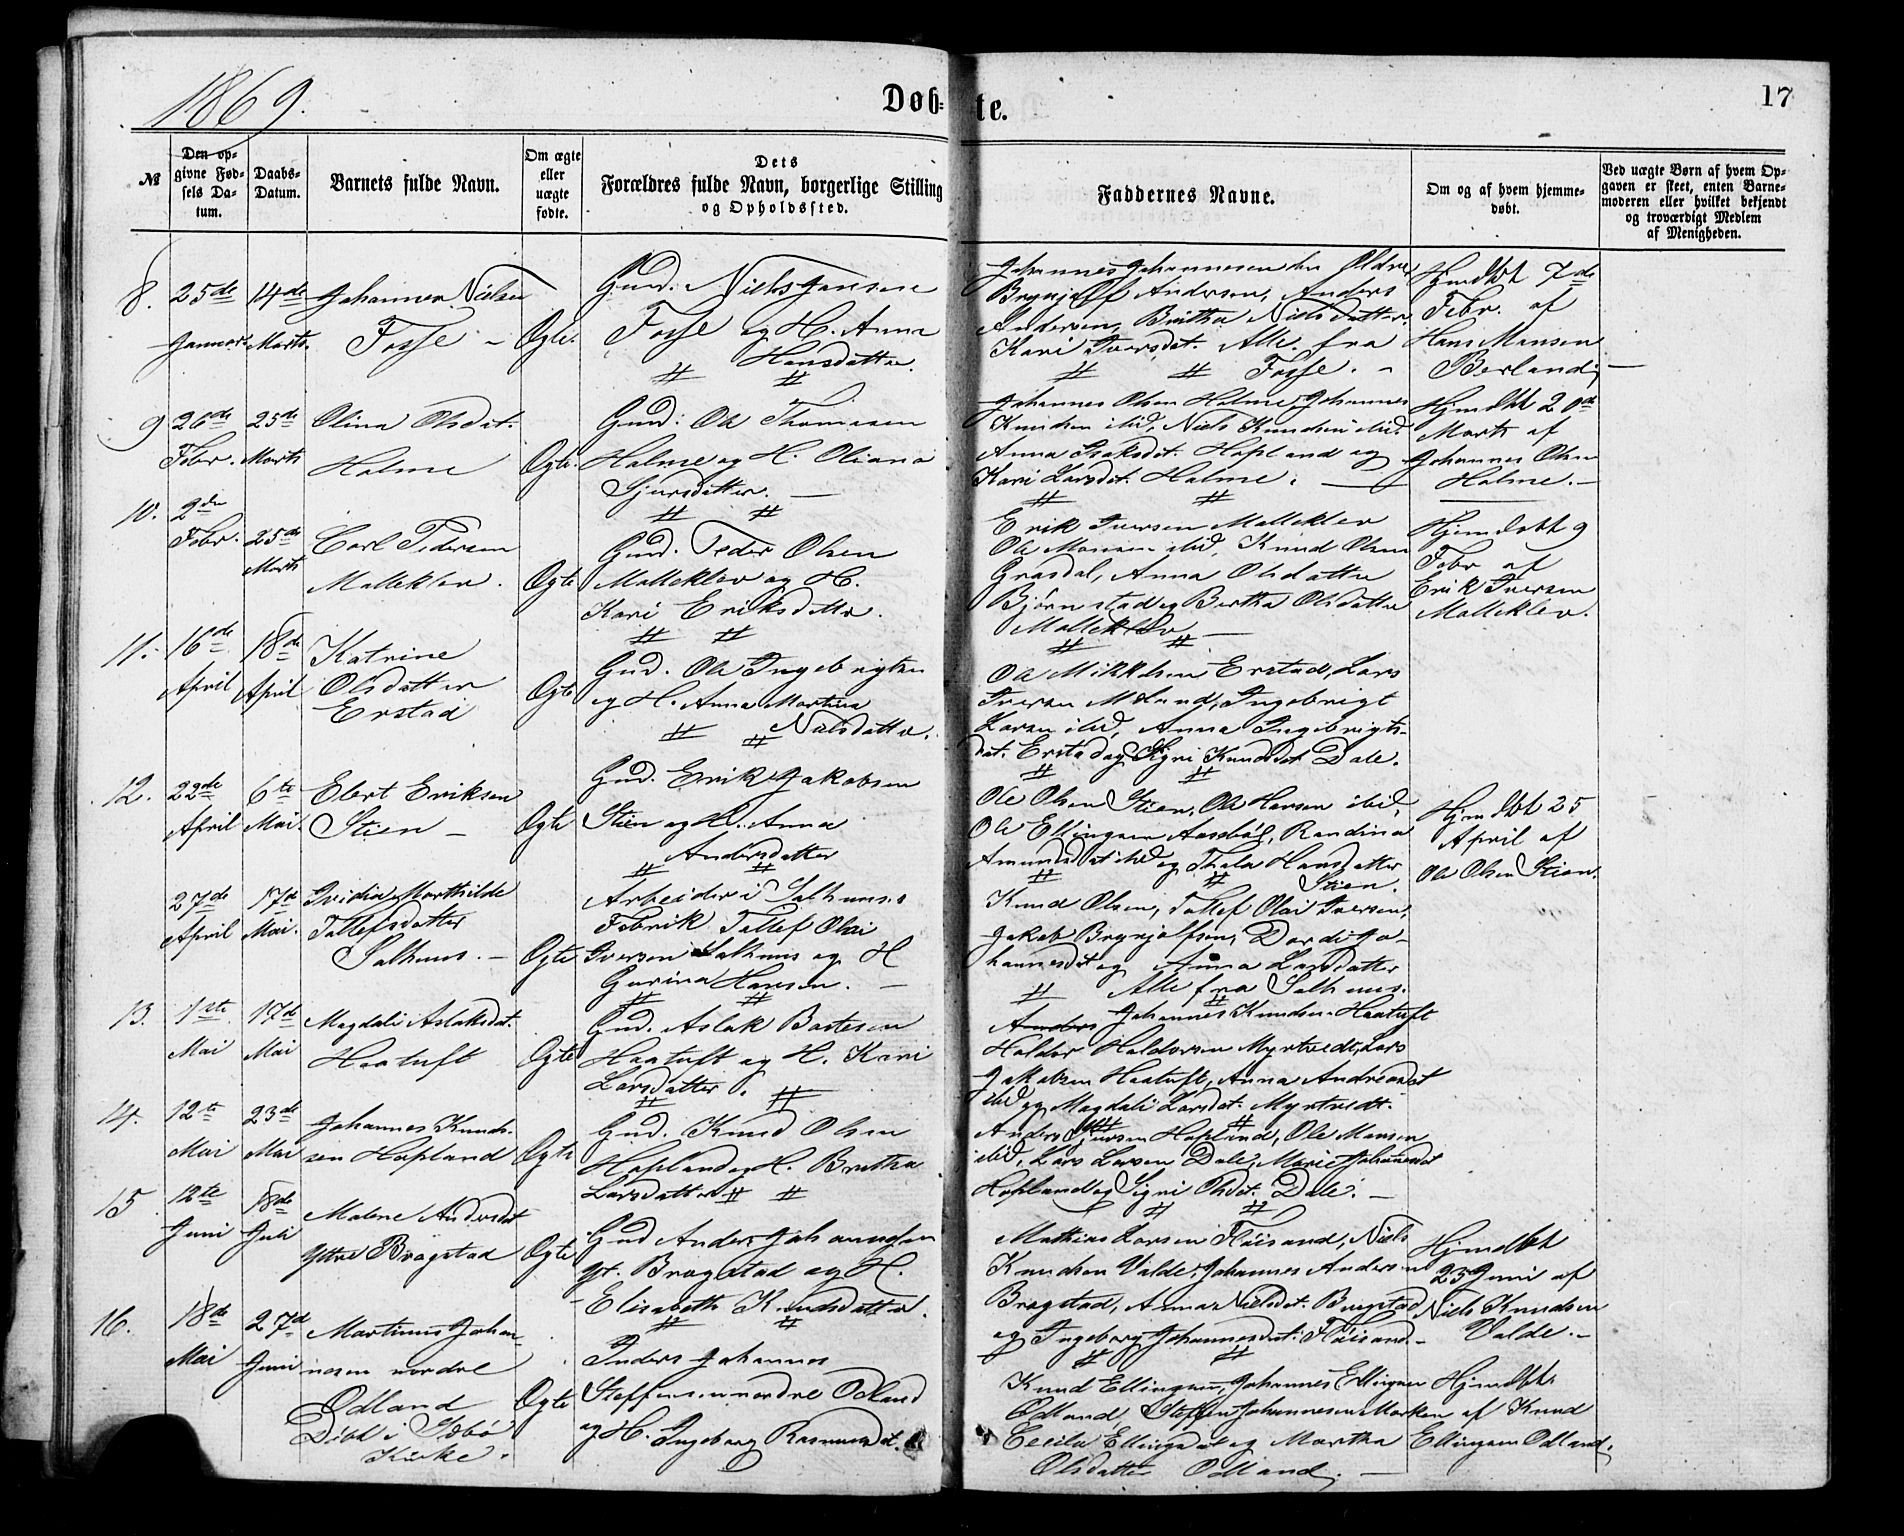 1869.
Døb-
te.
17
№
Den op-
givne Fød-
sels Da-
tum.
Daabs-
Datum.
Barnets fulde Navn.
Om ægte
eller
uægte
fødte.
Dets
Forældres fulde Navn, borgerlige Stilling
og Opholdssted.
Faddernes Navne.
Om og af hvem hjemme-
døbt.
Ved uægte Børn af hvem Op-
gaven er skeet, enten Barne-
moderen eller hvilket bekjendt
og troværdigt Medlem
af Menigheden.
8.
25de
Januar
14de
Marts.
Johannes Nielsen
Fosse –
Ægte.
Gmd. Niels Jansen
Fosse og H. Anna
Hansdatter.
Johannes Johannesen
Brynjolf Andersen, Anders
Andersen, Britha Nielsdatter.
Kari Iversdat. Alle fra
Fosse. –
Hjmdbt 7de
Febr. af
Hans Monsen
Berland
9
26de
Febr.
25de
Marts
Olina Olsdat.
Holme
Ægte.
Gmd: Ole Thomasen
Holme og H. Oliana
Sjursdatter. —
Johannes Olsen Holme, Johannes
Knudsen ibid, Niels Knudsen ibid.
Anna Isaksdat. Hopland og
Kari Larsdat. Holme.
Hjmdbt 20de
Marts af
Johannes Olsen
Holme. –
10.
2den
Febr.
25de
Marts
Carl Pedersen
Molleklev.
Ægte
Gmd. Peder Olsen
Molleklev og H.
Kari Eriksdattr.
Erik Iversen Molleklev
Ole Monsen ibid, Knud Olsen
Grasdal, Anna Olsdatter
Bjørnstad og Bertha Olsdatter
Molleklev —
Hjemdøbt 9
Febr af
Erik Iversen
Molleklev.
11.
16de
April
18de
April
Katrine
Olsdatter
Erstad
Ægte
Gmd. Ole Ingebrigtsen
og H. Anna Martha
Nielsdatter.
Ole Mikkelsen Erstad, Lars
Iversen Mæland, Ingebrigt
Larsen ibid, Anna Ingebrigts-
dat. Erstad og Sigri Knudsdat Dale.
12.
22de
April
6te
Mai.
Elert Eriksen
Stien –
Ægte
Gmd. Erik Jakobsen
Stien og H. Anna
Andersdatter
Ole Olsen Stien, Ole Hansen ibid,
Ole Ellingsen Aasebøl, Randina
Amundsdat ibid og Thala Hansdatter
Stien.
Hjmdbt 25
April af
Ole Olsen Stien.
27de
April
17de
Mai.
Marthilde
Tollefsdatter
Salhuus. –
Ægte
Arbeider i Salhuus
Fabrik Tollef Olai
Iversen Salhuus og H
Gurina Hansen. –
Knud Olsen, Tollef Olai Iversen,
Jakob Brynjolfsen, Dordi Jo-
hannesdat og Anna Larsdatter
Alle fra Salhuus.
13.
1ste
Mai
17de
Mai
Magdali Aslaksdat.
Haatuft
Ægte
Gmd. Aslak Bortesen
Haatuft og H. Kari
Larsdatter.
Anders Johannes Knudsen Haatuft
Haldor Haldorsen Myrtvedt, Lars
Jakobsen Haatuft, Anna Andreasdat
ibid og Magdali Larsdat. Myrtvedt.
14.
12te
Mai
23de
Mai
Johannes Knud-
sen Hopland
Ægte
Gmd. Knud Olsen
Hopland og H. Britha
Larsdatter
Anders Sjursen Hopland, Ole Monsen
ibid, Lars Larsen Dale, Marie Johannesdat
Hopland og Sigri Olsdat. Dale. –
15
12te
Juni
18de
Juli
Malene Andersdat
Yttre Brogstad
Ægte
Gmd Anders Johannessen
yt. Brogstad og H.
Elisabeth Knudsdatter.
Mathias Larsen Fløisand, Niels
Knudsen Valde, Johannes Andersen
Brogstad, Anna Nielsdat. Brogstad
og Ingeborg Johannesdat. Fløisand. –
Hjmdbt
23 Juni af
Niels Knudsen
Valde. –
16.
18de
Mai
27de
Juni
Martinus Johan-
nesen nordre
Odland
Døbt i Sæbø
Kirke.
Ægte
Inders Johannes
Steffensen nordre Odland
og H. Ingeborg Rasmusdat.
Knud Ellingsen, Johannes Ellingsen
Odland, Steffen Johannesen Marken
Cecilie Ellingsdat og Martha
Olsdatter Odland. —
Hjmdbt.
af Knud
Ellingsen Odland.